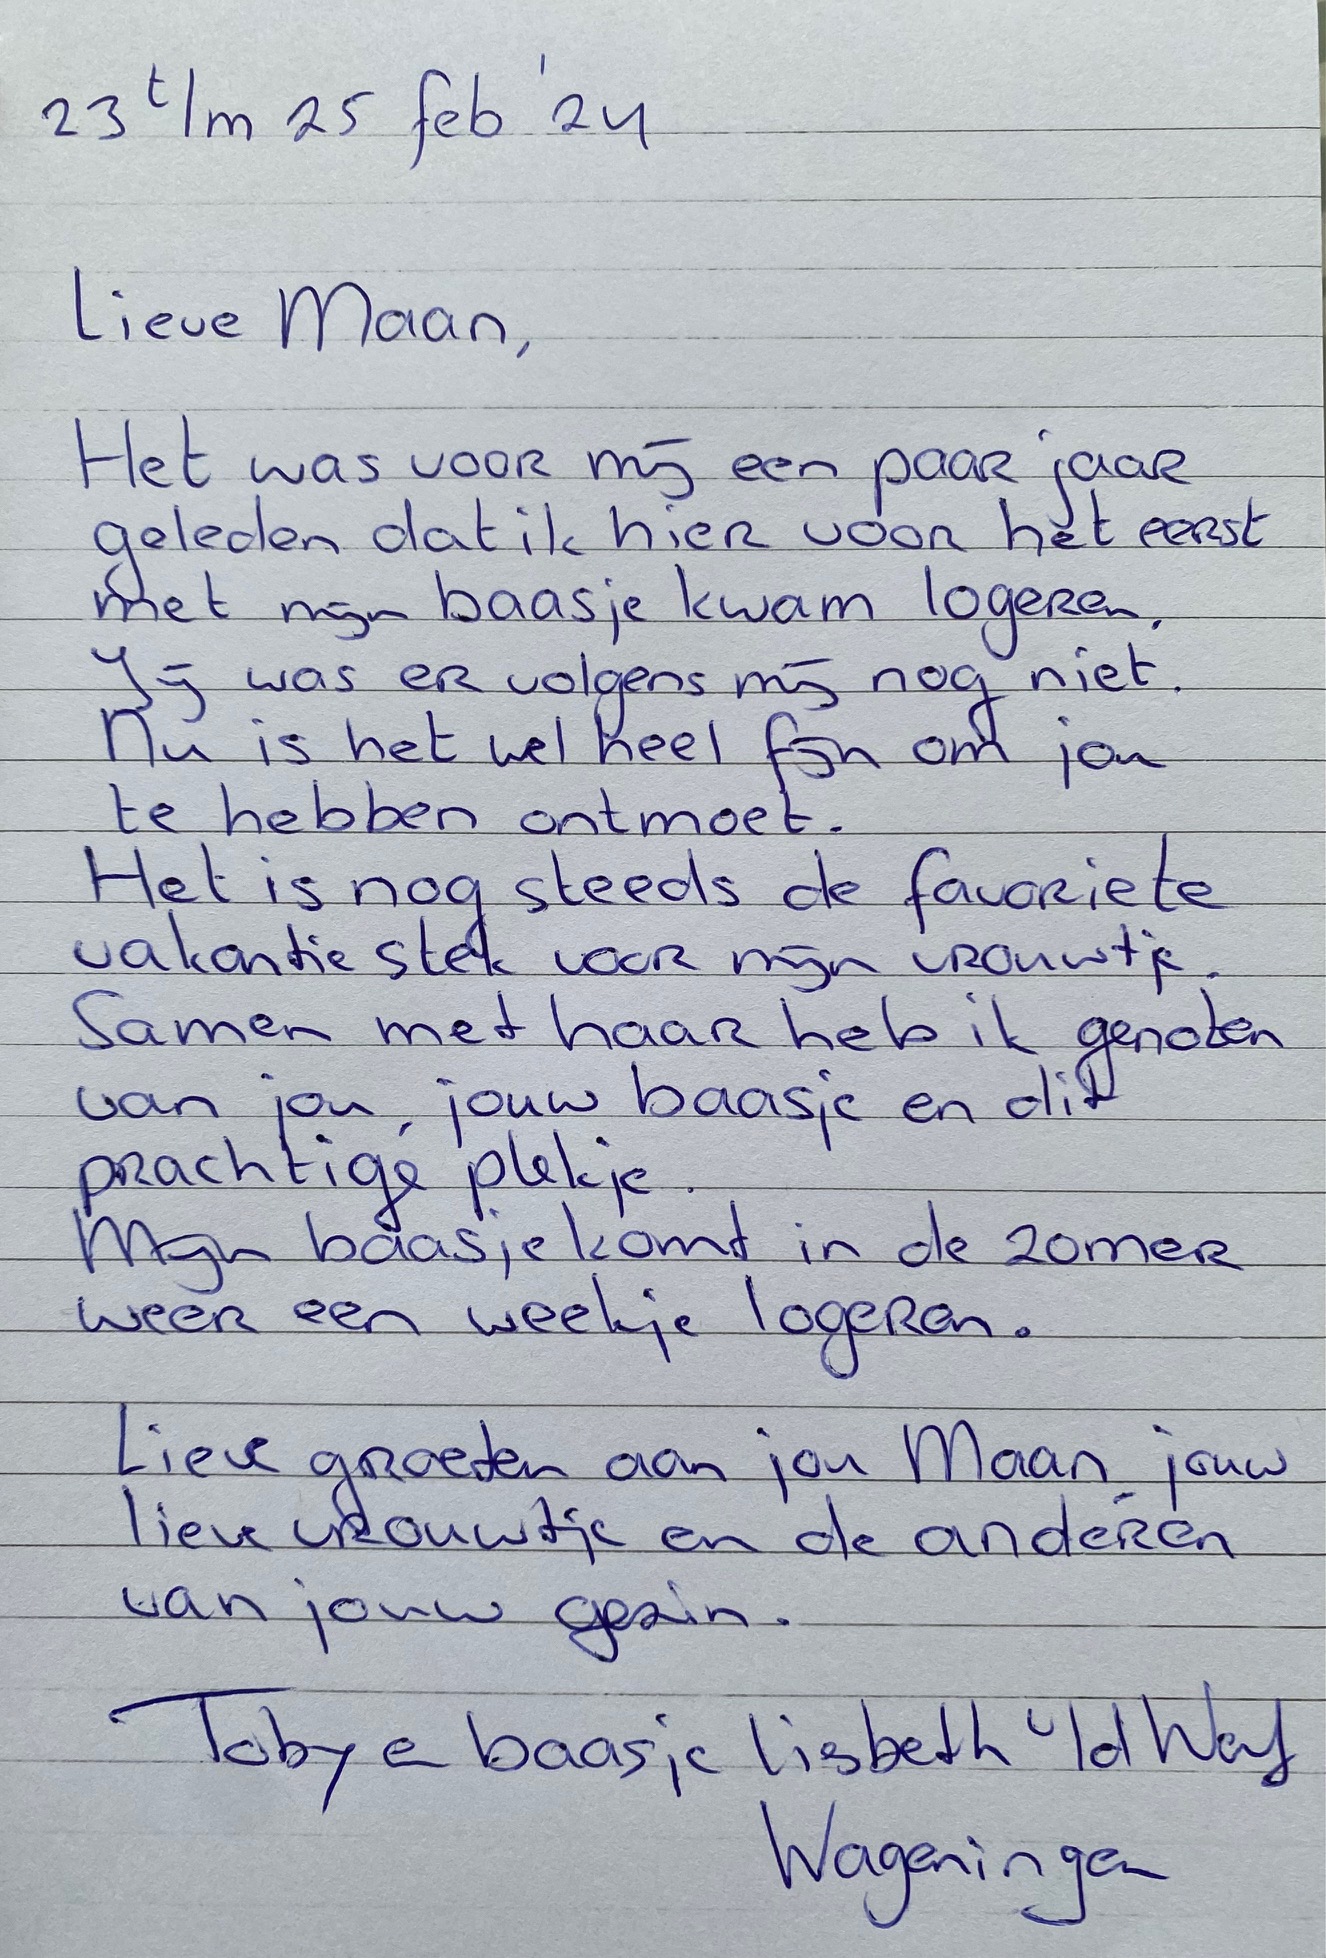 23 t/m 25 feb '24
Lieve Maan,
Het was voor mij een paar jaar
geleden dat ik hier voor het eerst
met mijn baasje kwam logeren.
Jij was er volgens mij nog niet.
Nu is het wel heel fijn om jou
te hebben ontmoet.
Het is nog steeds de favoriete
vakantie stek voor mijn vrouwtje.
Samen met haar heb ik genoten
van jou, jouw baasje en dit
prachtige plekje.
Mijn baasje komt in de zomer
weer een weekje logeren.
Lieve groeten aan jou Maan, jouw
lieve vrouwtje en de anderen
van jouw gezin.
Toby en baasje Lisbeth v/d Werf
Wageningen